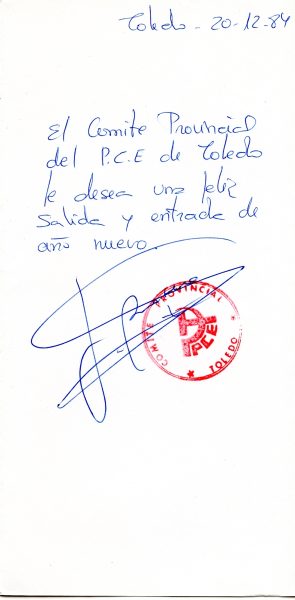 Toledo - 20-12-84
El Comite Provincial
del P.C.E de Toledo
le desea una feliz
salida y entrada de
año nuevo.
COMITE PROVINCIAL
PCE
TOLEDO